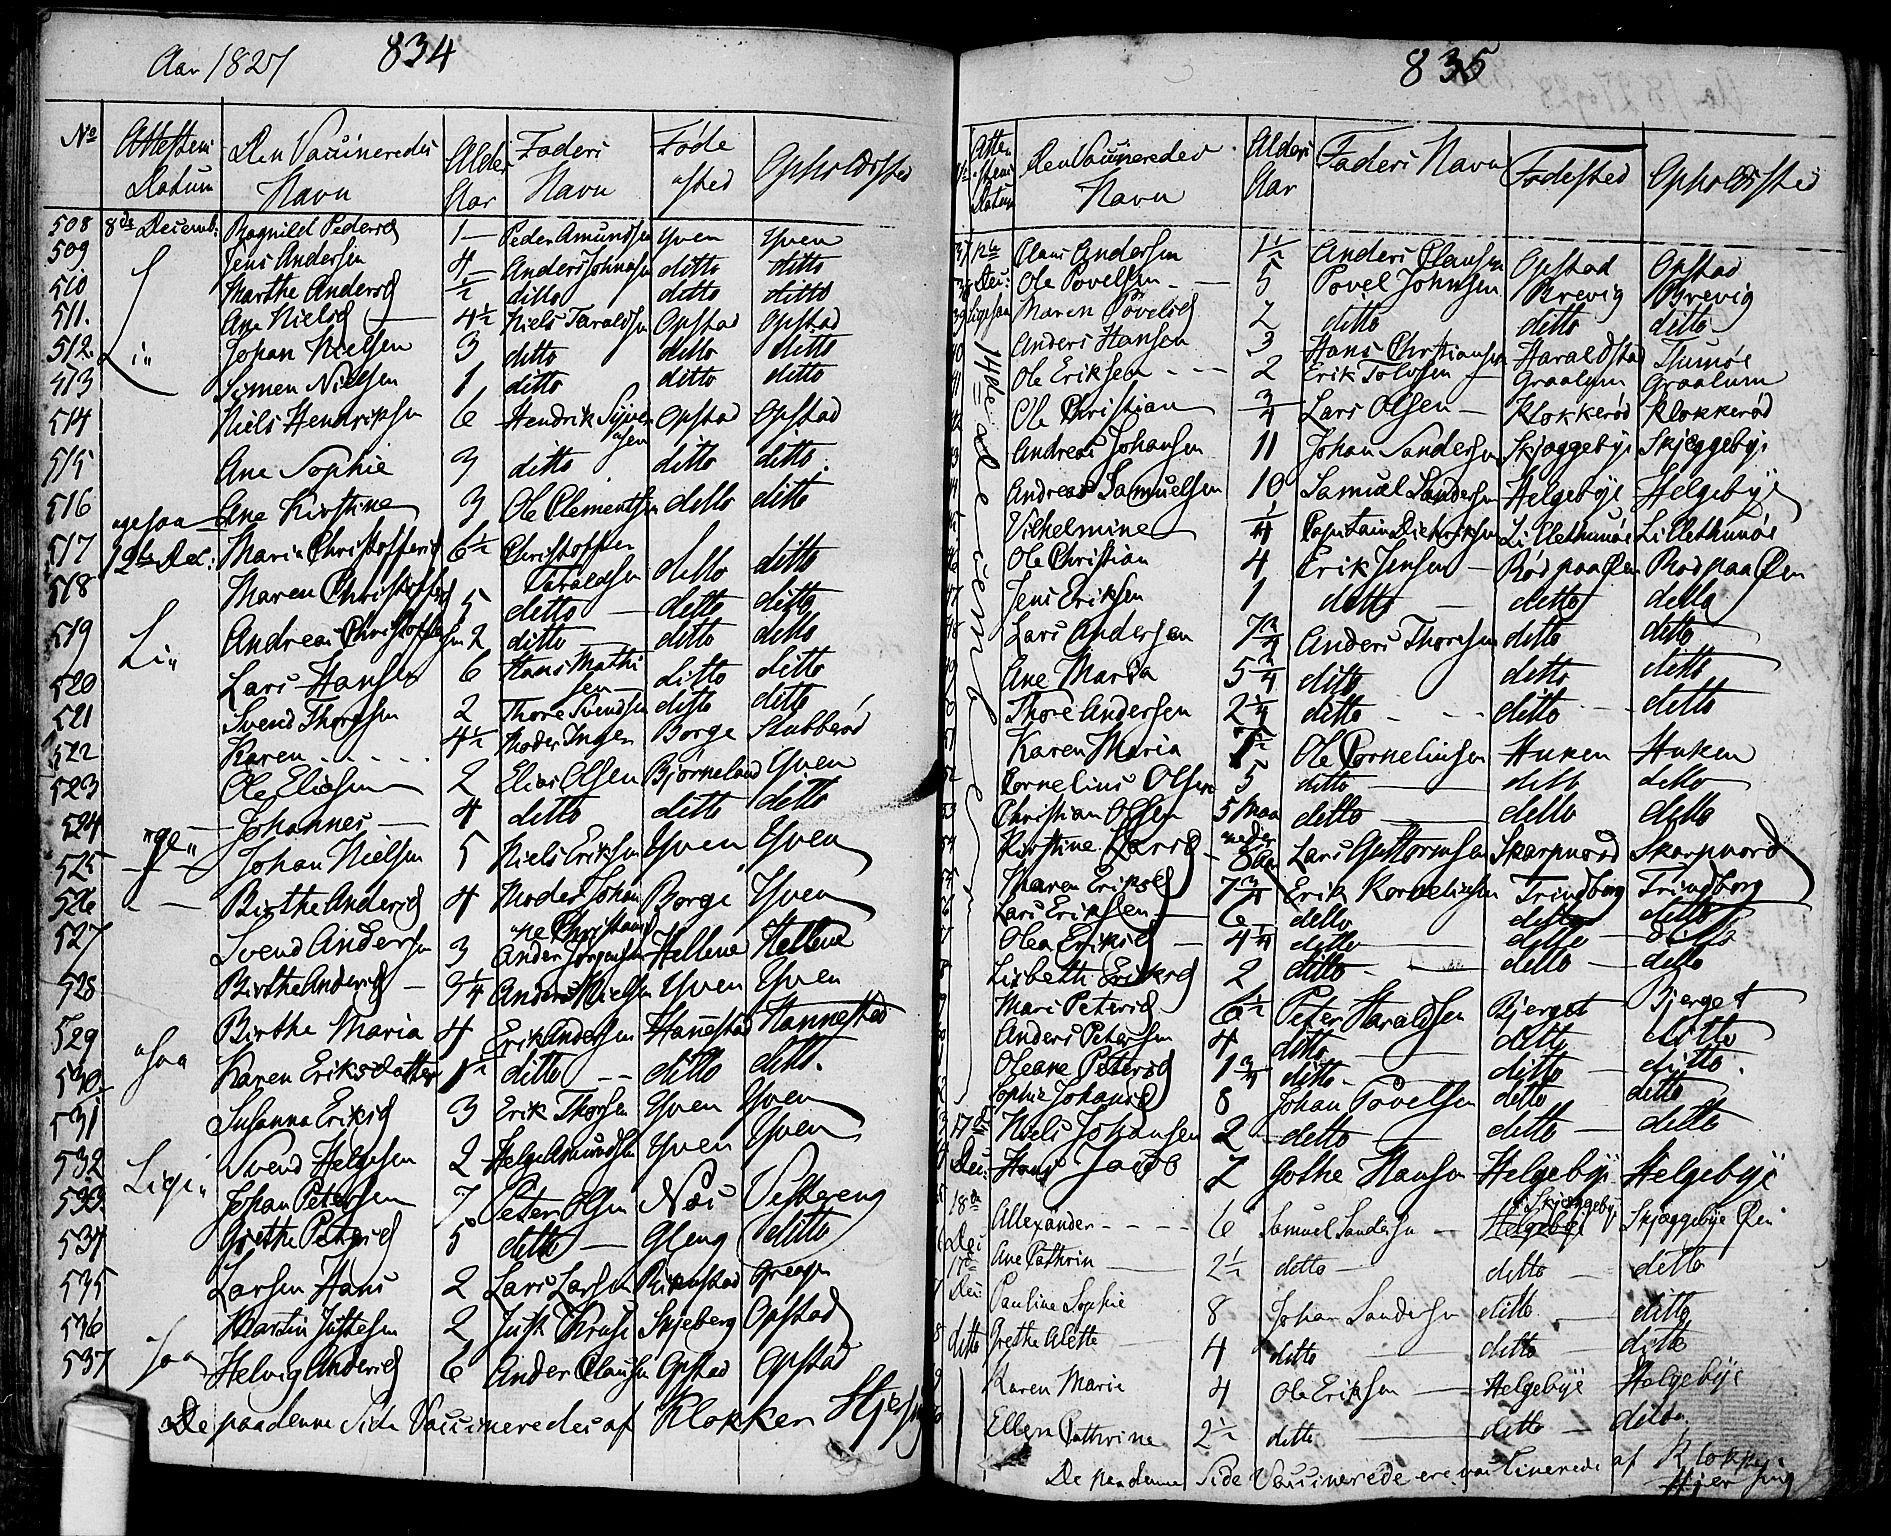 Aar 1827 834
No Attestens Datum Den Vaccineredes Navn Alder Aar Faders Navn Fødested Opholdsted
508 8de Decemb: Ragnild Pedersd 1 — Peder Amundsen Yven Yven
509 Jens Andersen 4 Anders Johnsen ditto ditto
510 Marthe Andersd ½ ditto ditto ditto
511. Ane Nielsd — 4½ Niels Taraldsen Opstad Opstad
512 Li„ Johan Nielsen 3 ditto ditto ditto
513 Simen Nielsen 1 ditto ditto ditto
514 Niels Hendriksen 6 Hendrik Syversen Opstad Opstad
515 Ane Sophie 3 ditto ditto ditto.
516 „gesaa Ane Kirstine 3 Ole Clementsen ditto ditto
517 12te Dec: Maria Christoffersd 6½ Christoffer Taraldsen ditto ditto
518 Maren Christoffersd 5 ditto — ditto ditto
519 Andreas Christoffersen 2 ditto — ditto ditto
520 Li„ Lars Hansen 6 Hans Mathisen ditto ditto
521 Svend Thoresen 2 Thore Svendsen ditto ditto
522 Karen . . . . . 4½ Moder Inger Borge Stubberød
523 Ole Eliasen 2 Elias Olsen Bjørneland Yven
524 Johannes — 4 ditto ditto ditto
525 „ge„ Johan Nielsen 5 Niels Eriksen Yven Yven
526 Birthe Andersd 4 Moder Johanne Christians Borge Yven
527 Svend Andersen 3 Anders Jørgensen Hellene Hellene
528 Birthe Andersd — 3¼ Anders Nielsen Yven Yven
529 Birthe Maria 4 Erik Andersen Hannestad Hannestad
530 „saa Karen Eriksdatter 1½ ditto — ditto ditto.
531 Susanna Eriksd 3 Erik Thorsen Yven Yven
532 Svend Helgesen 2 Helge Amundsen Yven Yven
533. Lige„ Johan Petersen 7 Peter Olsen Næs Vestgreng
534 Grethe Petersd 5 ditto — Gleng ditto
535 Larsen Hans 2 Lars Larsen
536 Martin Justesen 2 Just Kruse Skjeberg Opstad
537 „saa Helvig Andersd 6 Anders Clausen Opstad Opstad
De paa denne Side Vaccineredes af Klokker Hjersing
835
Attestens Datum Den Vaccineredes Navn Alders Aar Faders Navn Fødested Opholdsted
37 12te Claus Andersen 1½ Anders Clausen Opstad Opstad
38 Dec: Ole Povelsen - — 5 Povel Johnsen Brevig Brevig
39 Ligesaa Maren Povelsd 2 ditto ditto ditto
40 14de Decemb Anders Hansen 3 Hans Christiansen Haraldstad Thunøe
41 Ole Eriksen - - - 2 Erik Tolvsen Graalum Graalum
42 Ole Christian ¾ Lars Olsen — Klokkerød Klokkerød
43 Andreas Johansen 11 Johan Sandersen Skjæggebye Skjæggebye
44 Andreas Samuelsen 10 Samuel Sandersen Helgebye Helgebye
45 Vilhelmine ¼ Capitain Diedrichsen Lillethunøe Lillethunøe
46 Ole Christian 4 Erik Jensen — Rød paa Øen Rød paa Øen
47 Jens Eriksen 1 ditto — ditto ditto
48 Lars Andersen 7¾ Anders Thoresen ditto ditto
49 Ane Maria 5¼ ditto ditto ditto
50 Thore Andersen 2¼ ditto - - ditto - ditto
51 Karen Maria 7½ Ole Cornelinsen Huken Huken
52 Cornelius Olsen 5 ditto — ditto ditto
53 Christian Olsen 5 Maaneder ditto ditto ditto
54 Kirstine Larsd 8 Aar Lars Guttormsen Skarpnord Skarpnord
55 Maren Eriksd 7¾ Erik Kornelinsen Trindborg Trindborg
56 Lars Eriksen — 6 ditto ditto ditto
57 Olea Eriksd — 4¼ ditto ditto — ditto
58 Lisbeth Eriksd 2 ditto - — ditto — ditto
59 Mari Petersd 6½ Peter Haraldsen Bjerget Bjerget
60 Anders Petersen 4 ditto — ditto ditto
61 Oleane Petersd 1¾ ditto - ditto — ditto.
62 Sophie Johansd 8 Johan Povelsen ditto ditto
63 17de Niels Johansen 2 — ditto — ditto — ditto
64 Dec: Hans Jacob 2 Gothe Hansen Helgebye Helgebye
65 18de Allexander - - - - 6 Samuel Sandersen — Helgebye Skjæggebye Skjæggebye Øen
66 Dec Ane Cathrin — 2½ ditto — ditto — ditto
67 17de Dec: Pauline Sophie 8 Johan Sandersen ditto — ditto
68 ditto Grethe Alette — 4 ditto — ditto — ditto
69 Karen Marie 4 Ole Eriksen — Helgebye Helgebye
70 Ellen Cathrine 2½ ditto — ditto — ditto.
De paa denne Side Vaccinerede ere vaccinerede af Klokker Hjersing